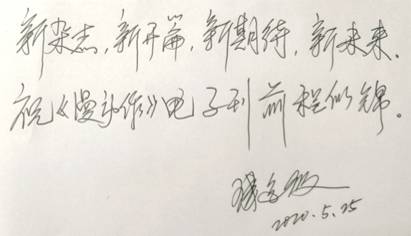 新杂志，新开篇，新期待，新未来。
祝《漫动作》电子刊前程似锦。
2020.5.25